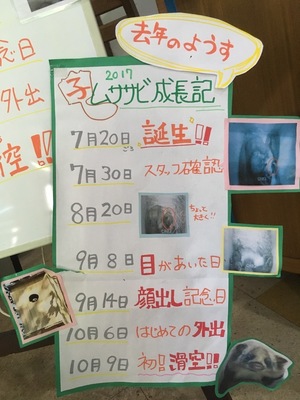 去年のようす
2017
子ムササビ成長記
7月20日ごろ 誕生!!
7月30日 スタッフ確認
8月20日 ちょっと大きく!!
9月8日 目があいた日
9月14日 顔出し記念日
10月6日 はじめての外出
10月9日 初!滑空!!
念日
外出
空!!